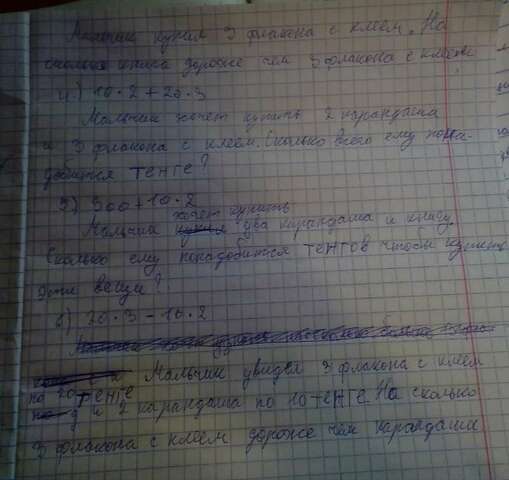 Мальчик купил 3 флакона с клеем. На
сколько книга дороже чем 3 флакона с клеем
4) 10·2+20·3
Мальчик хочет купить 2 карандаша
и 3 флакона с клеем. Сколько всего ему пона-
добится тенге?
5) 300+10·2
хочет купить
Мальчик два карандаша и книгу.
Сколько ему понадобится тенгов чтобы купить
эти вещи?
6) 20·3-10·2
Мальчик увидел 3 флакона с клеем
по 20 тенге
и 2 карандаша по 10 тенге. На сколько
3 флакона с клеем дороже чем карандаши